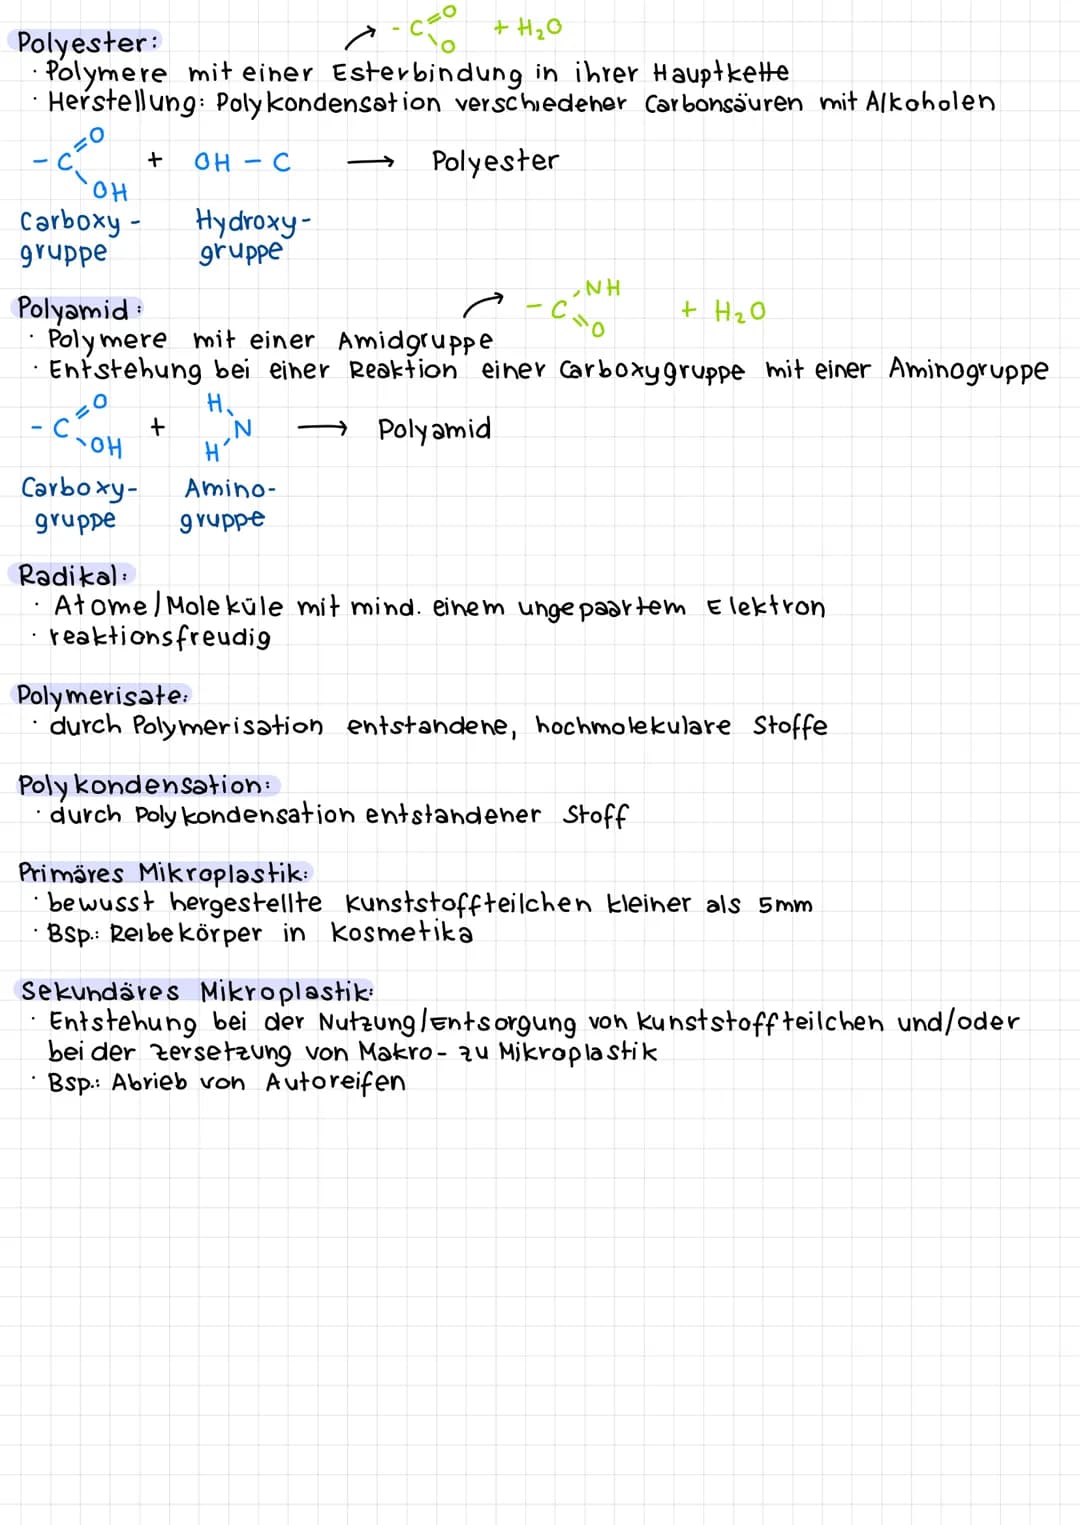 Polyester: - C=O \O + H₂O
· Polymere mit einer Esterbindung in ihrer Hauptkette
· Herstellung: Polykondensation verschiedener Carbonsäuren mit Alkoholen
- C=O \OH + OH - C → Polyester
Carboxy- Hydroxy-
gruppe gruppe
Polyamid: - C NH =O + H₂O
· Polymere mit einer Amidgruppe
· Entstehung bei einer Reaktion einer Carboxygruppe mit einer Aminogruppe
- C=O \OH + H H N → Polyamid
Carboxy- Amino-
gruppe gruppe
Radikal:
· Atome/Moleküle mit mind. einem ungepaartem Elektron
· reaktionsfreudig
Polymerisate:
· durch Polymerisation entstandene, hochmolekulare Stoffe
Polykondensation:
· durch Polykondensation entstandener Stoff
Primäres Mikroplastik:
· bewusst hergestellte Kunststoffteilchen kleiner als 5mm
· Bsp.: Reibekörper in Kosmetika
Sekundäres Mikroplastik:
· Entstehung bei der Nutzung/Entsorgung von Kunststoffteilchen und/oder
bei der Zersetzung von Makro- zu Mikroplastik
· Bsp.: Abrieb von Autoreifen